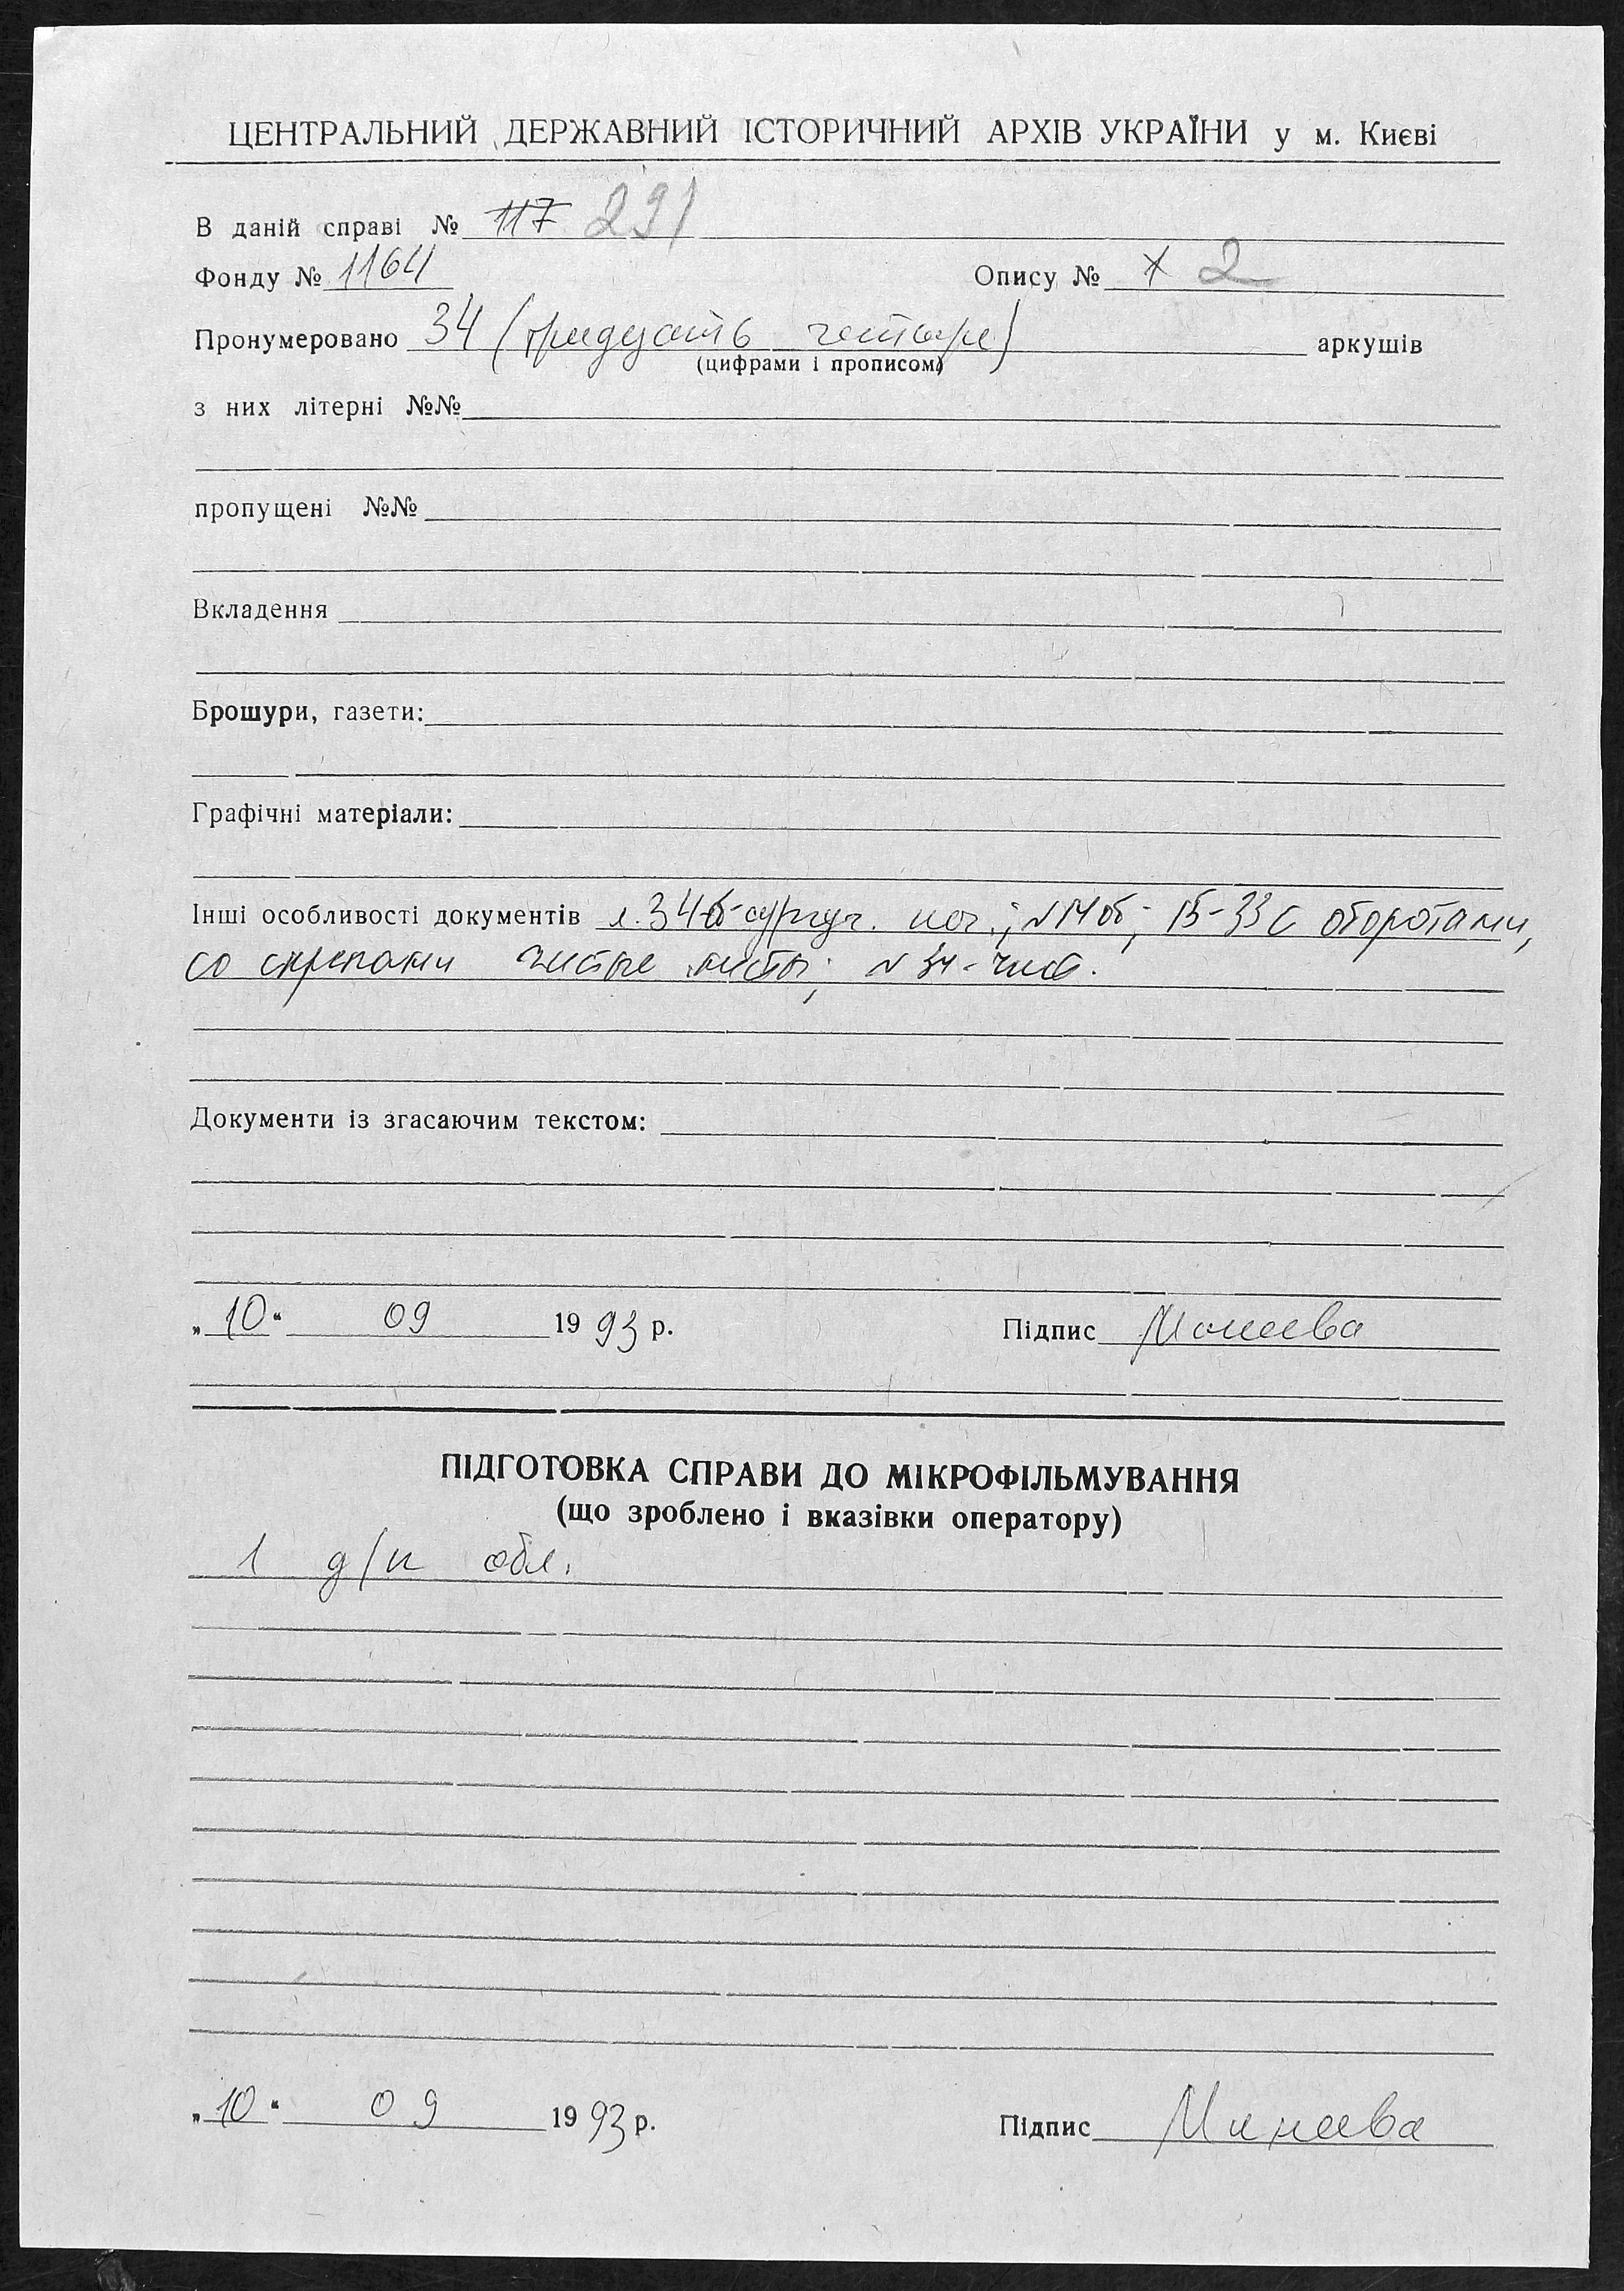 ЦЕНТРАЛЬНИЙ ДЕРЖАВНИЙ ІСТОРИЧНИЙ АРХІВ УКРАЇНИ у м. Києві
В даній справі № 117 291
Фонду № 1164 Опису № 1 2
Пронумеровано 34 (тридцать четыре) аркушів
(цифрами і прописом)
з них літерні №№
пропущені №№
Вкладення
Брошури, газети:
Графічні матеріали:
Інші особливості документів л. 34об-сургуч. печ.; л 14об, 15-33 с оборотами,
со скрепами чистые листы; л 34-чист.
Документи із згасаючим текстом:
„10“ 09 1993 р. Підпис
ПІДГОТОВКА СПРАВИ ДО МІКРОФІЛЬМУВАННЯ
(що зроблено і вказівки оператору)
1 д/к обл.
„10“ 09 1993 р. Підпис Минеева